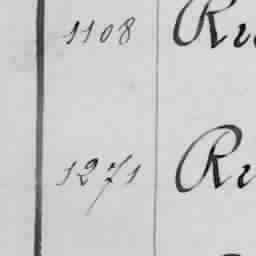 1108 Ru
1271 Ru